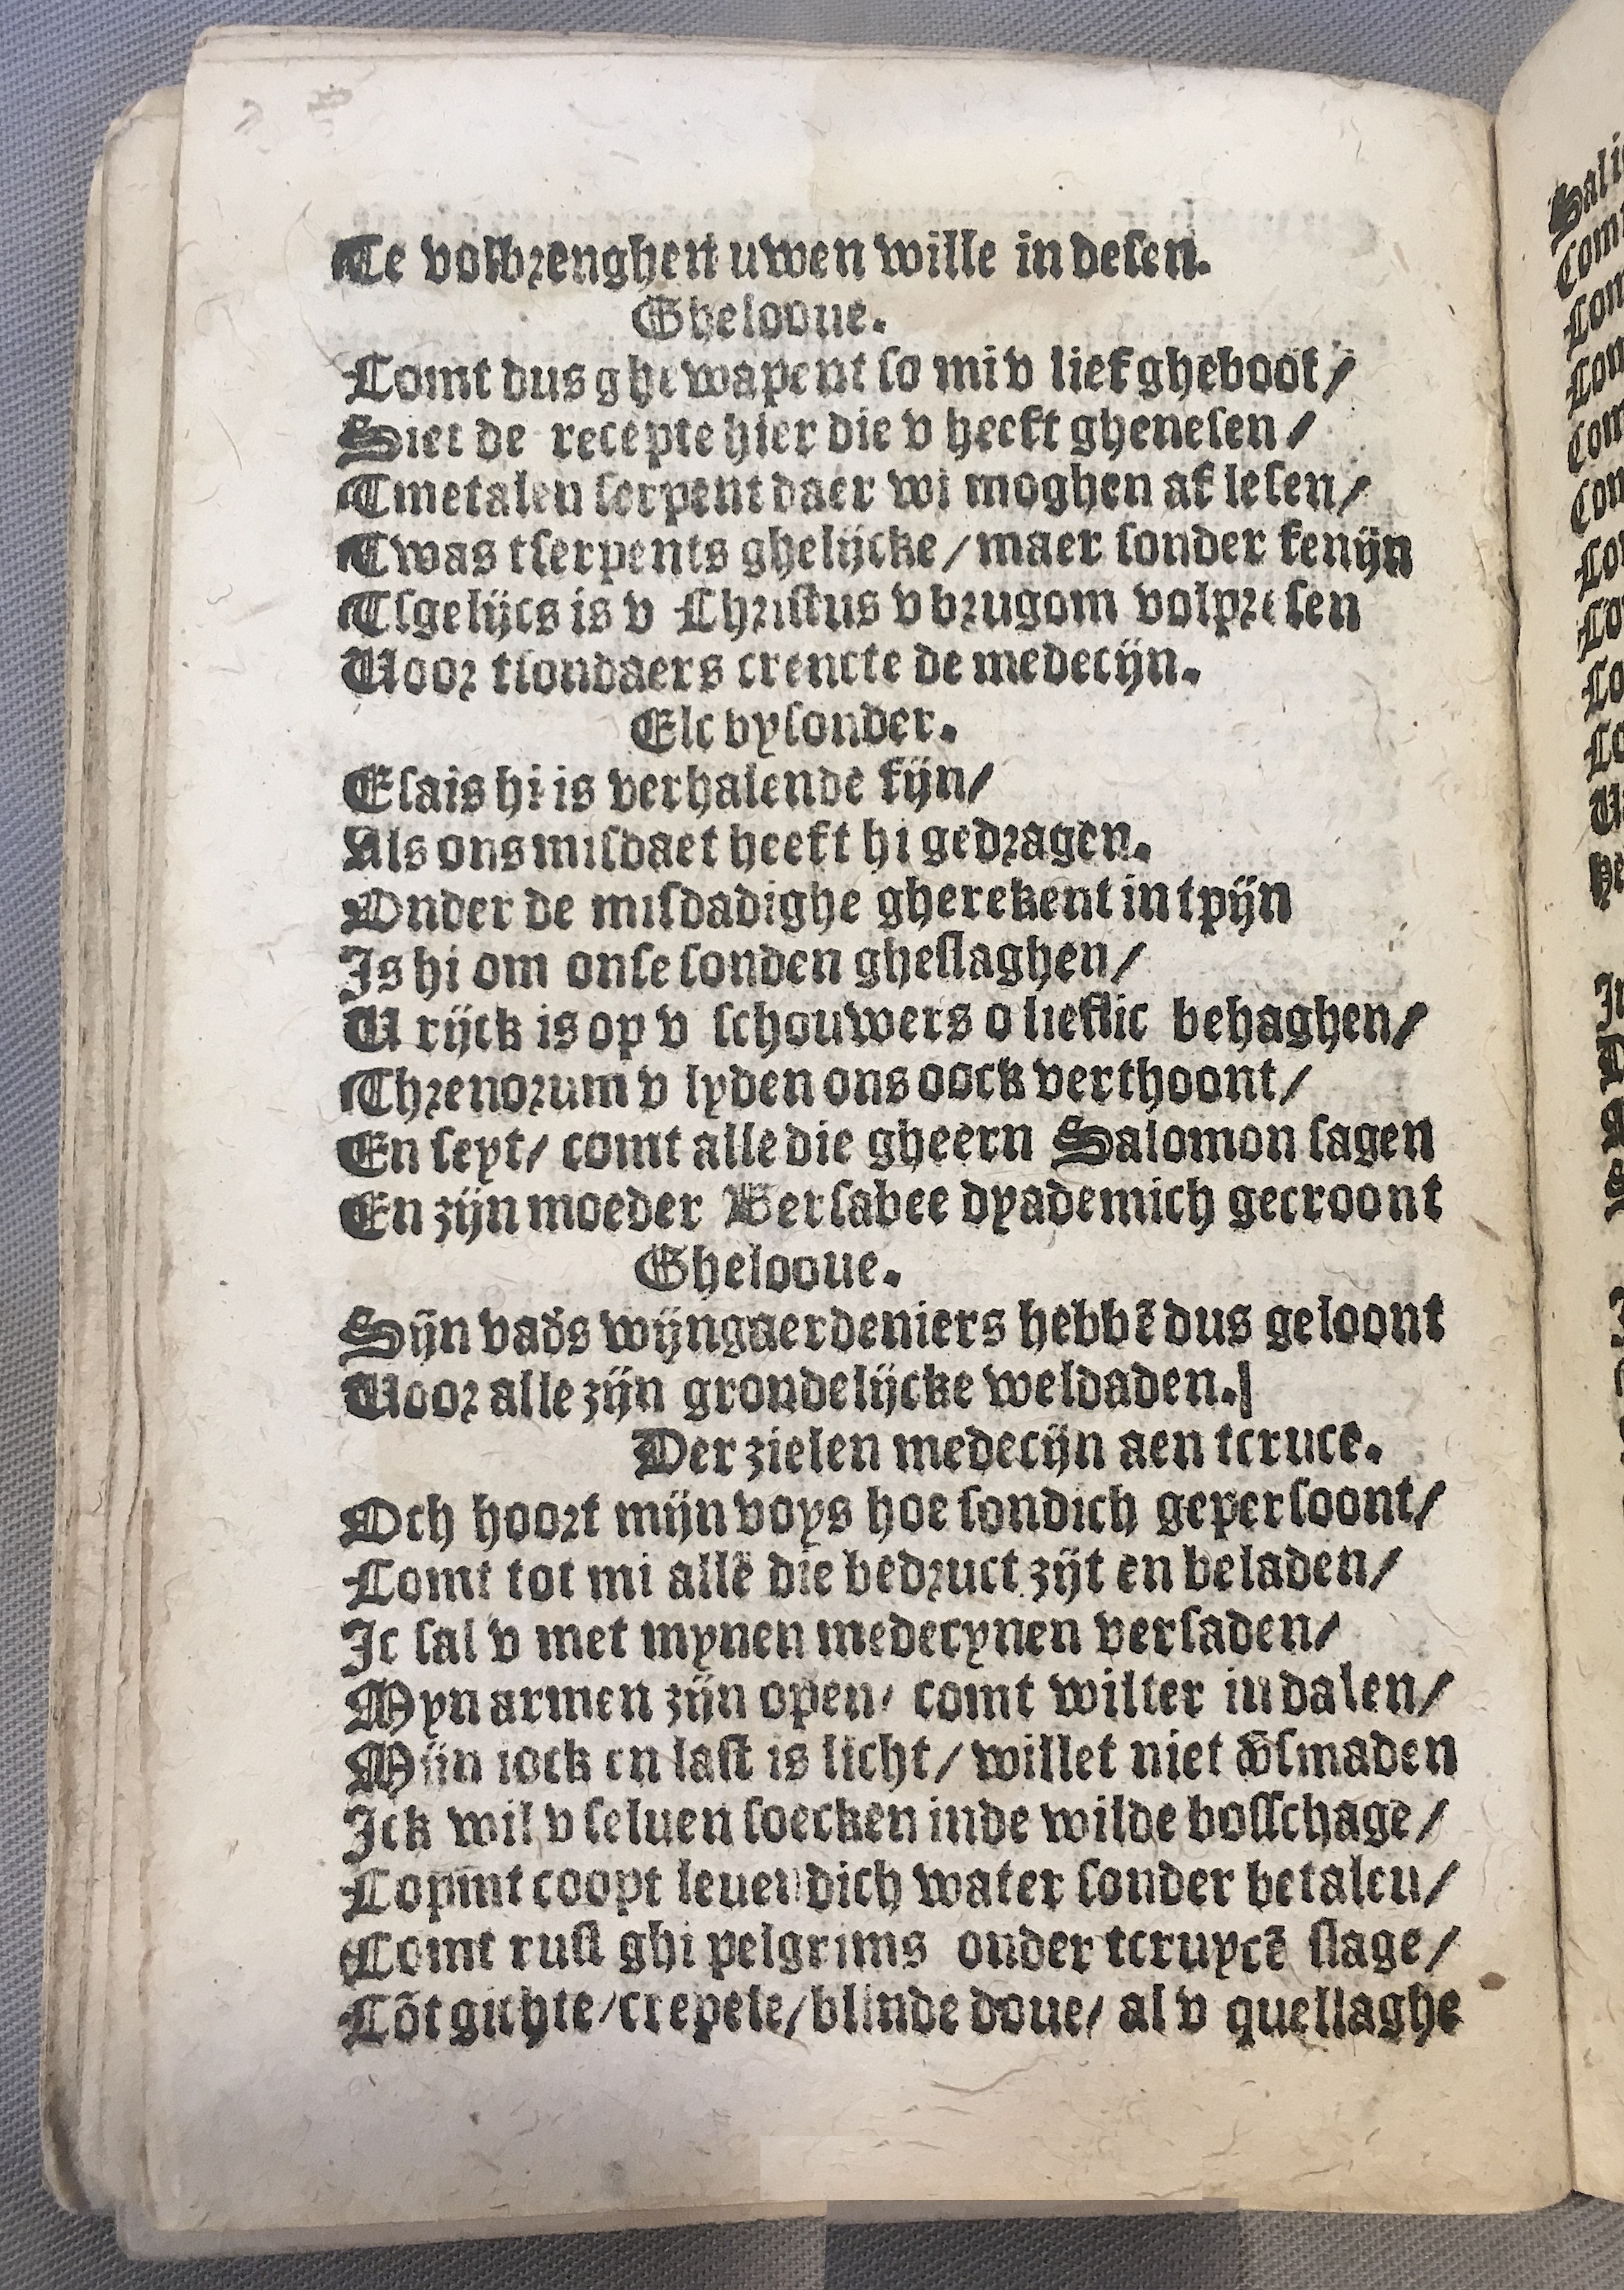 Te volbrenghen uwen wille in desen.
Ghelooue.
Comt dus ghewapent so mi v lief gheboot/
Siet de recepte hier die v heeft ghenesen/
Tmetalen serpent daer wi moghen af lesen/
Twas tserpents ghelijcke/ maer sonder fenijn
Tsgelijcs is v Christus v brugom volpresen
Uoor tsondaers crencte de medecijn.
Elc bysonder.
Esais hi is verhalende fijn/
Als ons misdaet heeft hi gedragen.
Onder de misdadighe gherekent int pijn
Is hi om onse sonden gheslaghen/
U rijck is op v schouwers o lieflic behaghen/
Threnorum v lyden ons oock verthoont/
En seyt/ comt alle die gheern Salomon sagen
En zijn moeder Bersabee dyademich gecroont
Ghelooue.
Sijn vad̄s wijngaerdeniers hebbē dus geloont
Uoor alle zijn grondelijcke weldaden.
Der zielen medecijn aen tcruce.
Och hoort mijn voys hoe sondich gepersoont/
Comt tot mi allē die bedruct zijt en beladen/
Ic sal v met mynen medecynen versaden/
Myn armen zijn open/ comt wilter in dalen/
Mijn iock en last is licht/ willet niet v̄smaden
Ick wil v seluen soecken inde wilde bosschage/
Copmt coopt leuendich water sonder betalen/
Comt rust ghi pelgrims onder tcruycē slage/
Cōt gichte/ crepele/ blinde doue/ al v quellaghe